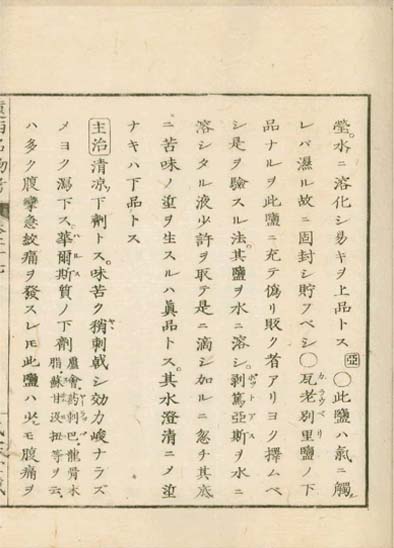 瑩。水ニ溶化シ易キヲ上品トス亞〇此鹽ハ氣ニ觸
レバ濕ル故ニ固封シ貯フベシ〇瓦老別里鹽ノ下
品ナルヲ此鹽ニ充テ僞リ販ク者アリヨク擇ムベ
シ是ヲ驗スル法。其鹽ヲ水ニ溶シ。剥篤亞斯ヲ水ニ
溶シタル液少許ヲ取テ是ニ滴シ加ルニ忽チ其底
ニ苦味ノ塗ヲ生スルハ眞品トス。其水澄清ニメ塗
ナキハ下品トス
主治清凉下劑トス。味苦ク稍刺戟シ効力峻ナラズ
メヨク瀉下ス。華爾斯質ノ下劑蘆會藥刺巴龍骨木脂蘇甘没扭等ヲ云
ハ多ク腹攣急紋痛ヲ發スレモ此鹽ハ少モ腹痛ヲ